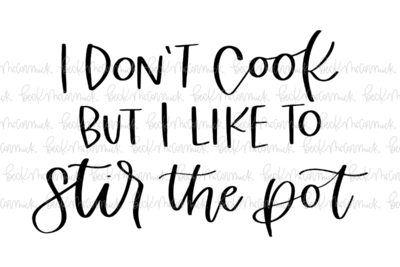 I DON'T COOK
BUT I LIKE TO
stir the pot